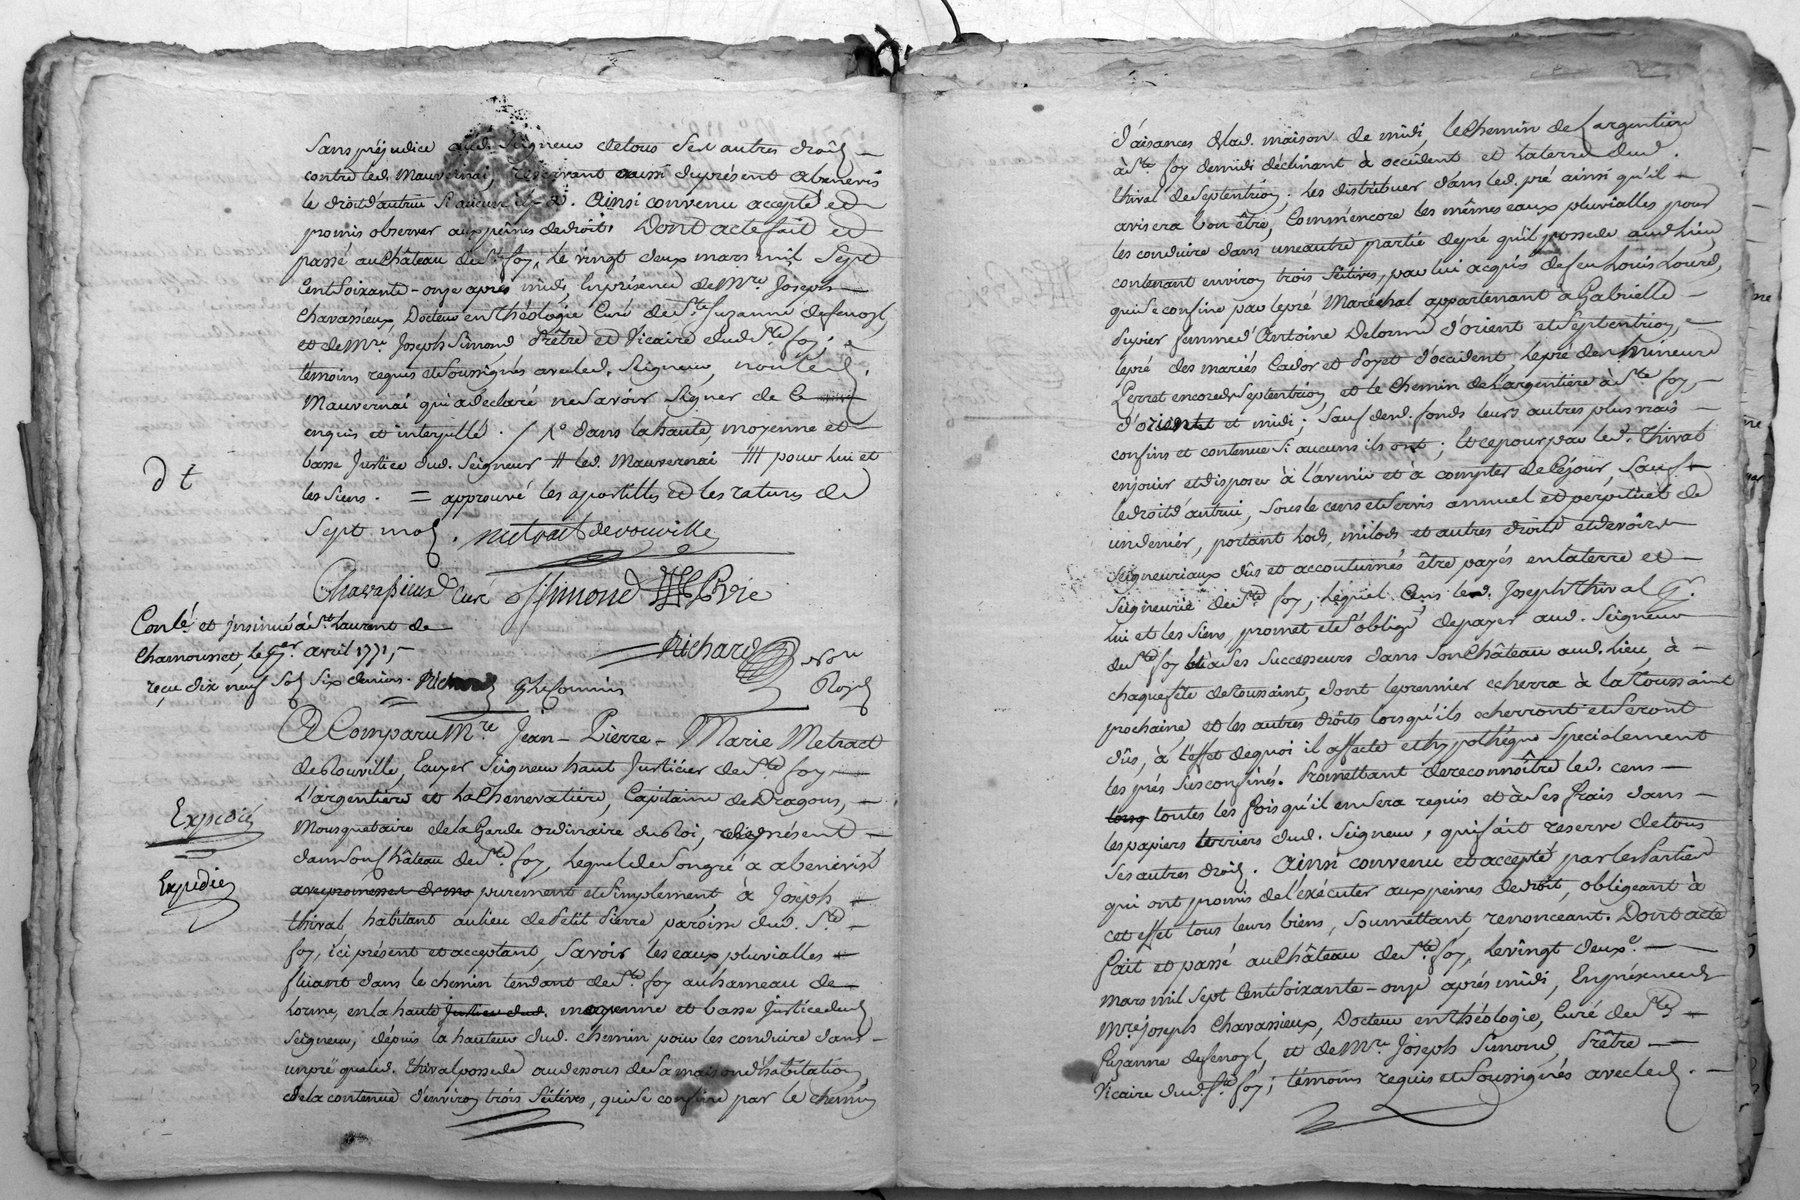 Sans préjudice aud. Seigneur de tous Ses autres droits
contre led. Mauvernai, reservant aussi du présent abenevis
le droit d'autrui Si aucun il y a. Ainsi convenu accepté et
promis observer aux peines de droit. Dont acte fait et
passé au Château de Ste foy, Le vingt deux mars mil Sept
Cent Soixante-onze après midi, En présence de Mre. Joseph
Chavassieux, Docteur en théologie Curé de Ste Suzanne desenoyl,
et de Mre. Joseph Simond Prêtre et Vicaire dud. Ste foy,
témoins requis et Soussignés avec led. Seigneur, non led.
Mauvernai qui a déclaré ne Savoir Signer de ce
enquis et interpellé. / No dans la haute, moyenne et
basse Justice dud. Seigneur # led. Mauvernai #/ pour lui et
les Siens. = approuvé les apostilles et les ratures de
Sept mots. metract de rouville
Chavassieux Curé J Simond Brie
Richard Nore Royal
d t
Conlé. et insinué à St. Laurent de
Chamousset, le 1er. avril 1771,
reçu dix neuf Sols Six deniers. Richard
A Comparu Mre. Jean-Pierre-Marie Metract
de Rouville, Ecuyer Seigneur haut Justicier de Ste foy
L'argentiere et La Chenevatiere, Capitaine de Dragons,
Mousquetaire de la Garde ordinaire du Roi, present
dans Son Château de Ste. foy, Lequel de Son gré a abenevisé
avec promesse de purement et Simplement, à Joseph
thival habitant au lieu de Petit Pierre paroisse dud. Ste
foy, ici présent et acceptant, Savoir les eaux pluvialles
fluant dans le chemin tendant de Ste foy au hameau de
Lorme, en la haute Justice dud. moyenne et basse Justice dud.
Seigneur, dépuis la hauteur dud. chemin pour les conduire dans
un pré que led. thival possede au dessous de Sa maison d'habitation,
de la contenue d'environ trois Seitives, qui Se confine par le chemin
Expedié
Expedié
d'aisances de lad. maison de midi, le Chemin de Largentiere
à Ste foy de midi déclinant à occident et la terre dud.
thival de Septentrion; les distribuer dans led. pré ainsi qu'il
avisera bon être, Comm'encore les mêmes eaux pluvialles pour
les conduire dans une autre partie de pré qu'il possede aud. lieu,
contenant environ trois Seitives, par lui acquis de feu Louis Lourd,
qui Se confine par le pré Maréchal appartenant à Gabrielle
Pupier femme d'Antoine Delorme d'orient et Septentrion,
le pré des mariés Cador et Poyet d'occident, le pré des mineurs
Perret encore de Septentrion, et le Chemin de Largentiere à Ste. foy,
d'orient et midi; Sauf desd. fonds leurs autres plus vrais
confins et contenue Si aucuns ils ont; Et ce pour par led. Thival
en jouir et disposer à l'avenir et à compter de ce jour, Sauf
le droit d'autrui, Sous le cens et Servis annuel et perpétuel de
un denier, portant Lods, milods et autres droits et devoirs
Seigneuriaux dûs et accoutumés être payés en la terre et
Seigneurie de Ste foy, lequel Cens led. Joseph Thival p.
lui et les Siens, promet et S'oblige de payer aud. Seigneur
de Ste foy et à Ses Successeurs dans Son Château aud. Lieu, à
chaque fête de Toussaint, dont le premier echerra à la Toussaint
prochaine et les autres droits lorsqu'ils echerront et Seront
dûs, à l'effet de quoi il affecte et hypothéque Spécialement
les prés Sus confinés. Promettant de reconnoître led. cens
toutes les fois qu'il en Sera requis et à Ses frais dans
les papiers terriers dud. Seigneur, qui fait reserve de tous
Ses autres droits. Ainsi convenu et accepté par les Parties
qui ont promis de l'exécuter aux peines de droit, obligeant à
cet effet tous leurs biens, Soumettant renonceant. Dont acte
fait et passé au Château de Ste. foy, le vingt deuxe.
mars mil Sept Cent Soixante-onze après midi, En présence de
Mre. joseph Chavassieux, Docteur en théologie, Curé de Ste
Suzanne desenoyl, et de Mre. Joseph Simond Prêtre
Vicaire dud. Ste foy; témoins requis et Soussignés avec led.